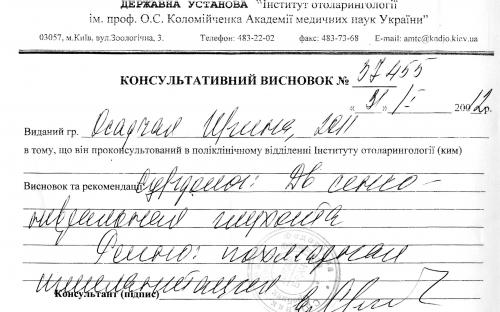 ДЕРЖАВНА УСТАНОВА "Інститут отоларингології
ім. проф. О.С. Коломійченка Академії медичних наук України"
03057, м.Київ, вул.Зоологічна, 3. Телефон: 483-22-02 факс: 483-73-68 E-mail: amtc@kndio.kiev.ua
КОНСУЛЬТАТИВНИЙ ВИСНОВОК № 37455
« 31 » I 2012 р.
Виданий гр. Осадчая Ирина, 2011
в тому, що він проконсультований в поліклінічному відділенні Інституту отоларингології (ким)
Висновок та рекомендації Сурдолог: Дв сенсо-
невральная глухота
Реком: кохлеарная
имплантация
Консультант (підпис)